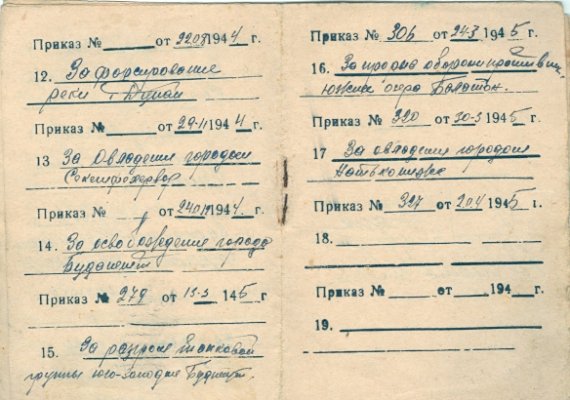 Приказ № от 1944 г.
12. За форсирование
реки Дунай
Приказ № от 29.11 1944 г.
13 За Овладение городом
Приказ № от 1944 г.
14. За освобождение города
Будапешт
Приказ № 279 от 13-3 145 г
15. За разгром танковой
группы юго-западнее Будапешт.
Приказ № 306 от 243 1945 г.
16. За прорыв обороны противник.
южнее озера Балатон.
Приказ № 320 от 30-3 1945 г.
17 За овладение городом
Приказ № 327 от 20.4 1945 г.
18.
Приказ № от 194 г.
19.